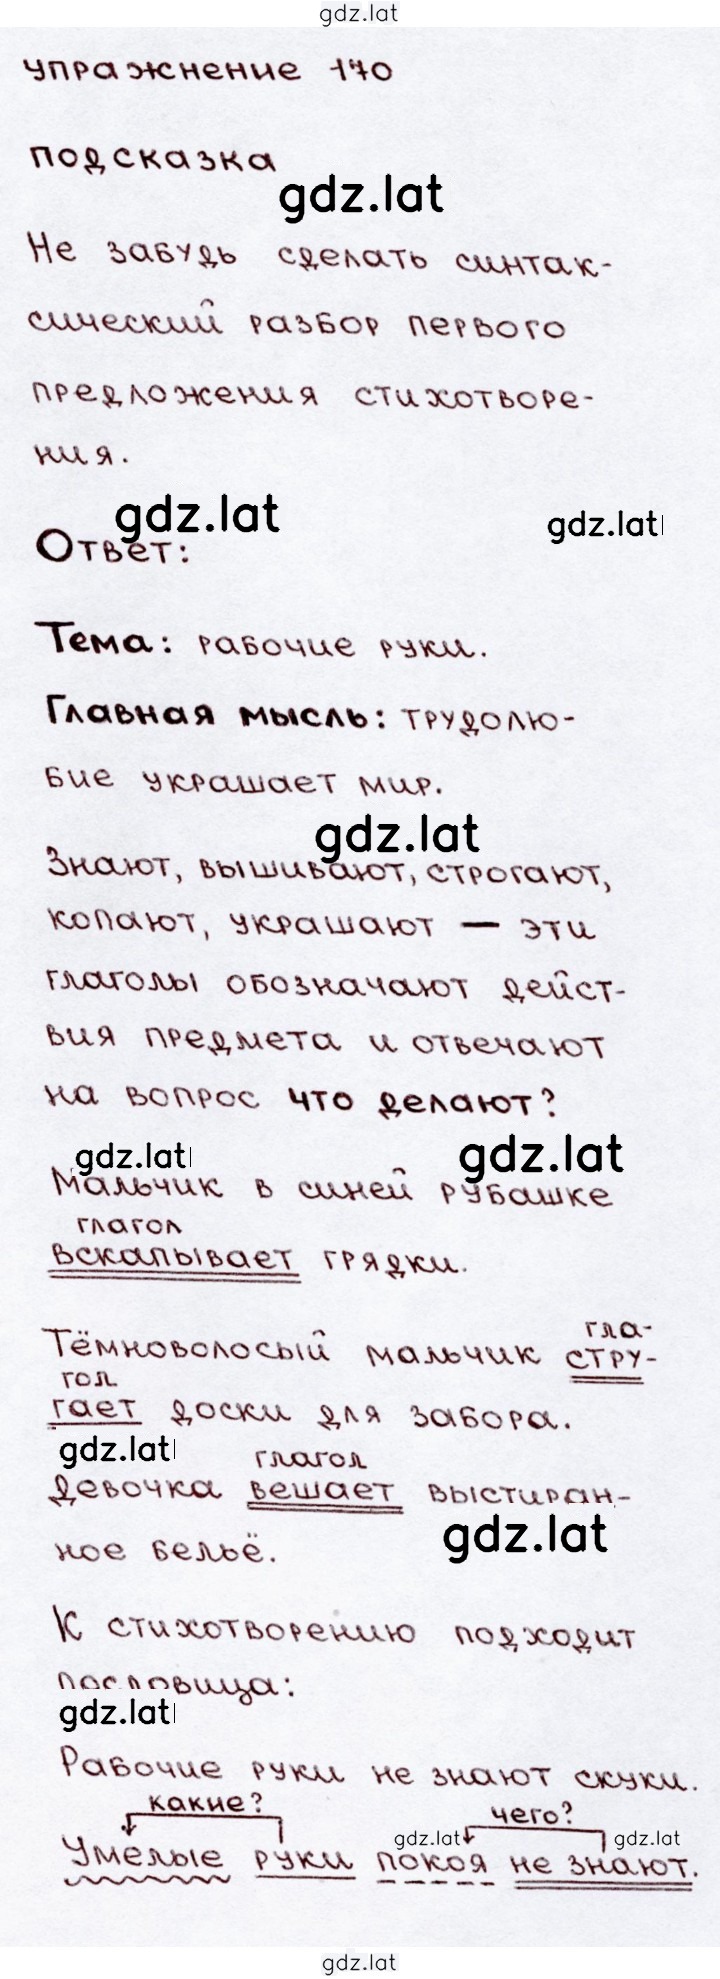 gdz.lat
упражнение 170
подсказка
gdz.lat
Не забудь сделать синтак-
сический разбор первого
предложения стихотворе-
ния.
gdz.lat
gdz.lat
Ответ:
Тема: рабочие руки.
Главная мысль: трудолю-
бие украшает мир.
gdz.lat
Знают, вышивают, строгают,
копают, украшают — эти
глаголы обозначают дейст-
вия предмета и отвечают
на вопрос что делают?
gdz.lat
gdz.lat
Мальчик в синей рубашке
глагол
вскапывает грядки.
гла-
Тёмноволосый мальчик стру-
гол
гает доски для забора.
gdz.lat
глагол
Девочка вешает выстиран-
gdz.lat
ное бельё.
К стихотворению подходит
пословица:
gdz.lat
Рабочие руки не знают скуки.
какие? чего?
gdz.lat gdz.lat
Умелые руки покоя не знают.
gdz.lat